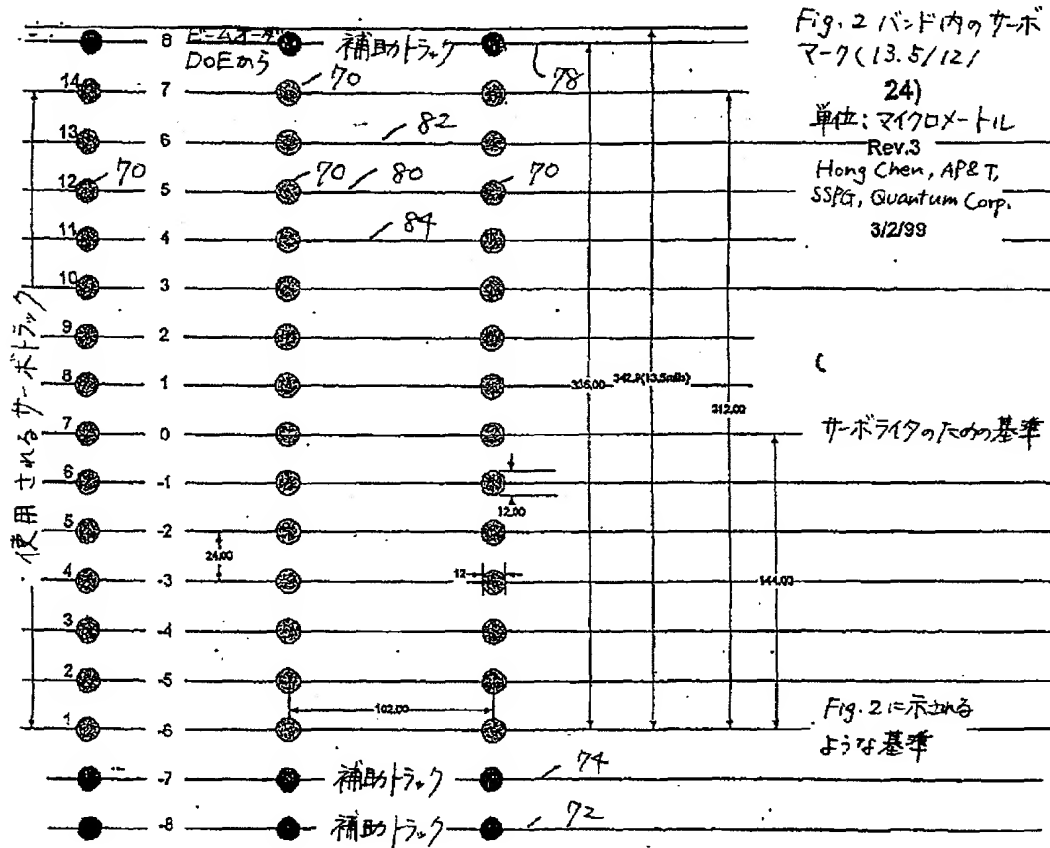 Fig. 2 バンド内のサーボ
マーク(13.5/12/
24)
単位:マイクロメートル
Rev.3
Hong Chen, AP&T,
SSPG, Quantum Corp.
3/2/99
8 ビームオーダ 補助トラック
DOEから
78
14 7 70
13 6 82
12 70 5 70 80 70
11 4 84
10 3
9 2
8 1
336.00 342.9(13.5mils)
312.00
7 0 サーボライタのための基準
6 -1
12.00
5 -2
24.00
4 -3 12
144.00
3 -4
2 -5
102.00
1 -6
Fig. 2に示される
ような基準
-7 補助トラック 74
-8 補助トラック 72
使用されるサーボトラック